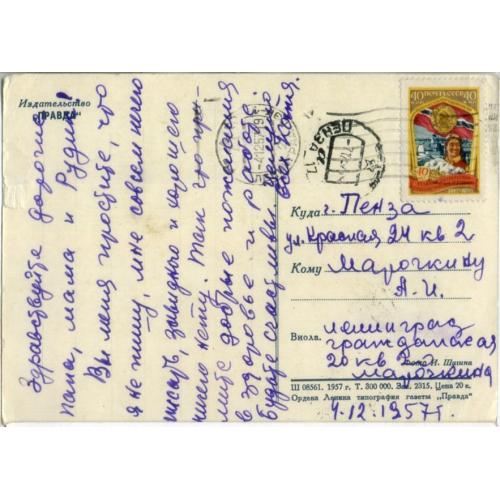 Издательство
"ПРАВДА"
Здравствуйте дорогие
папа, мама и Рудик!
Вы меня простите, что
я не пишу, мне совсем нечего
писать, завидного и хорошего
ничего нету. Так что при-
мите добрые пожелания
в здоровье и работе.
Будьте счастливы.
всех Катя.
40 ПОЧТА СССР 40
40
ПЕНЗА
Куда г. Пенза
ул. Красная 24 кв 2
Кому Марочкину
А. И.
Ленинград
гражданская
20 кв 2
Фото И. Шагина
Марочкина
Ш 08561. 1957 г. Т. 300 000. Зак. 2315. Цена 20 к.
Ордена Ленина типография газеты „Правда"
4-12-1957 г.